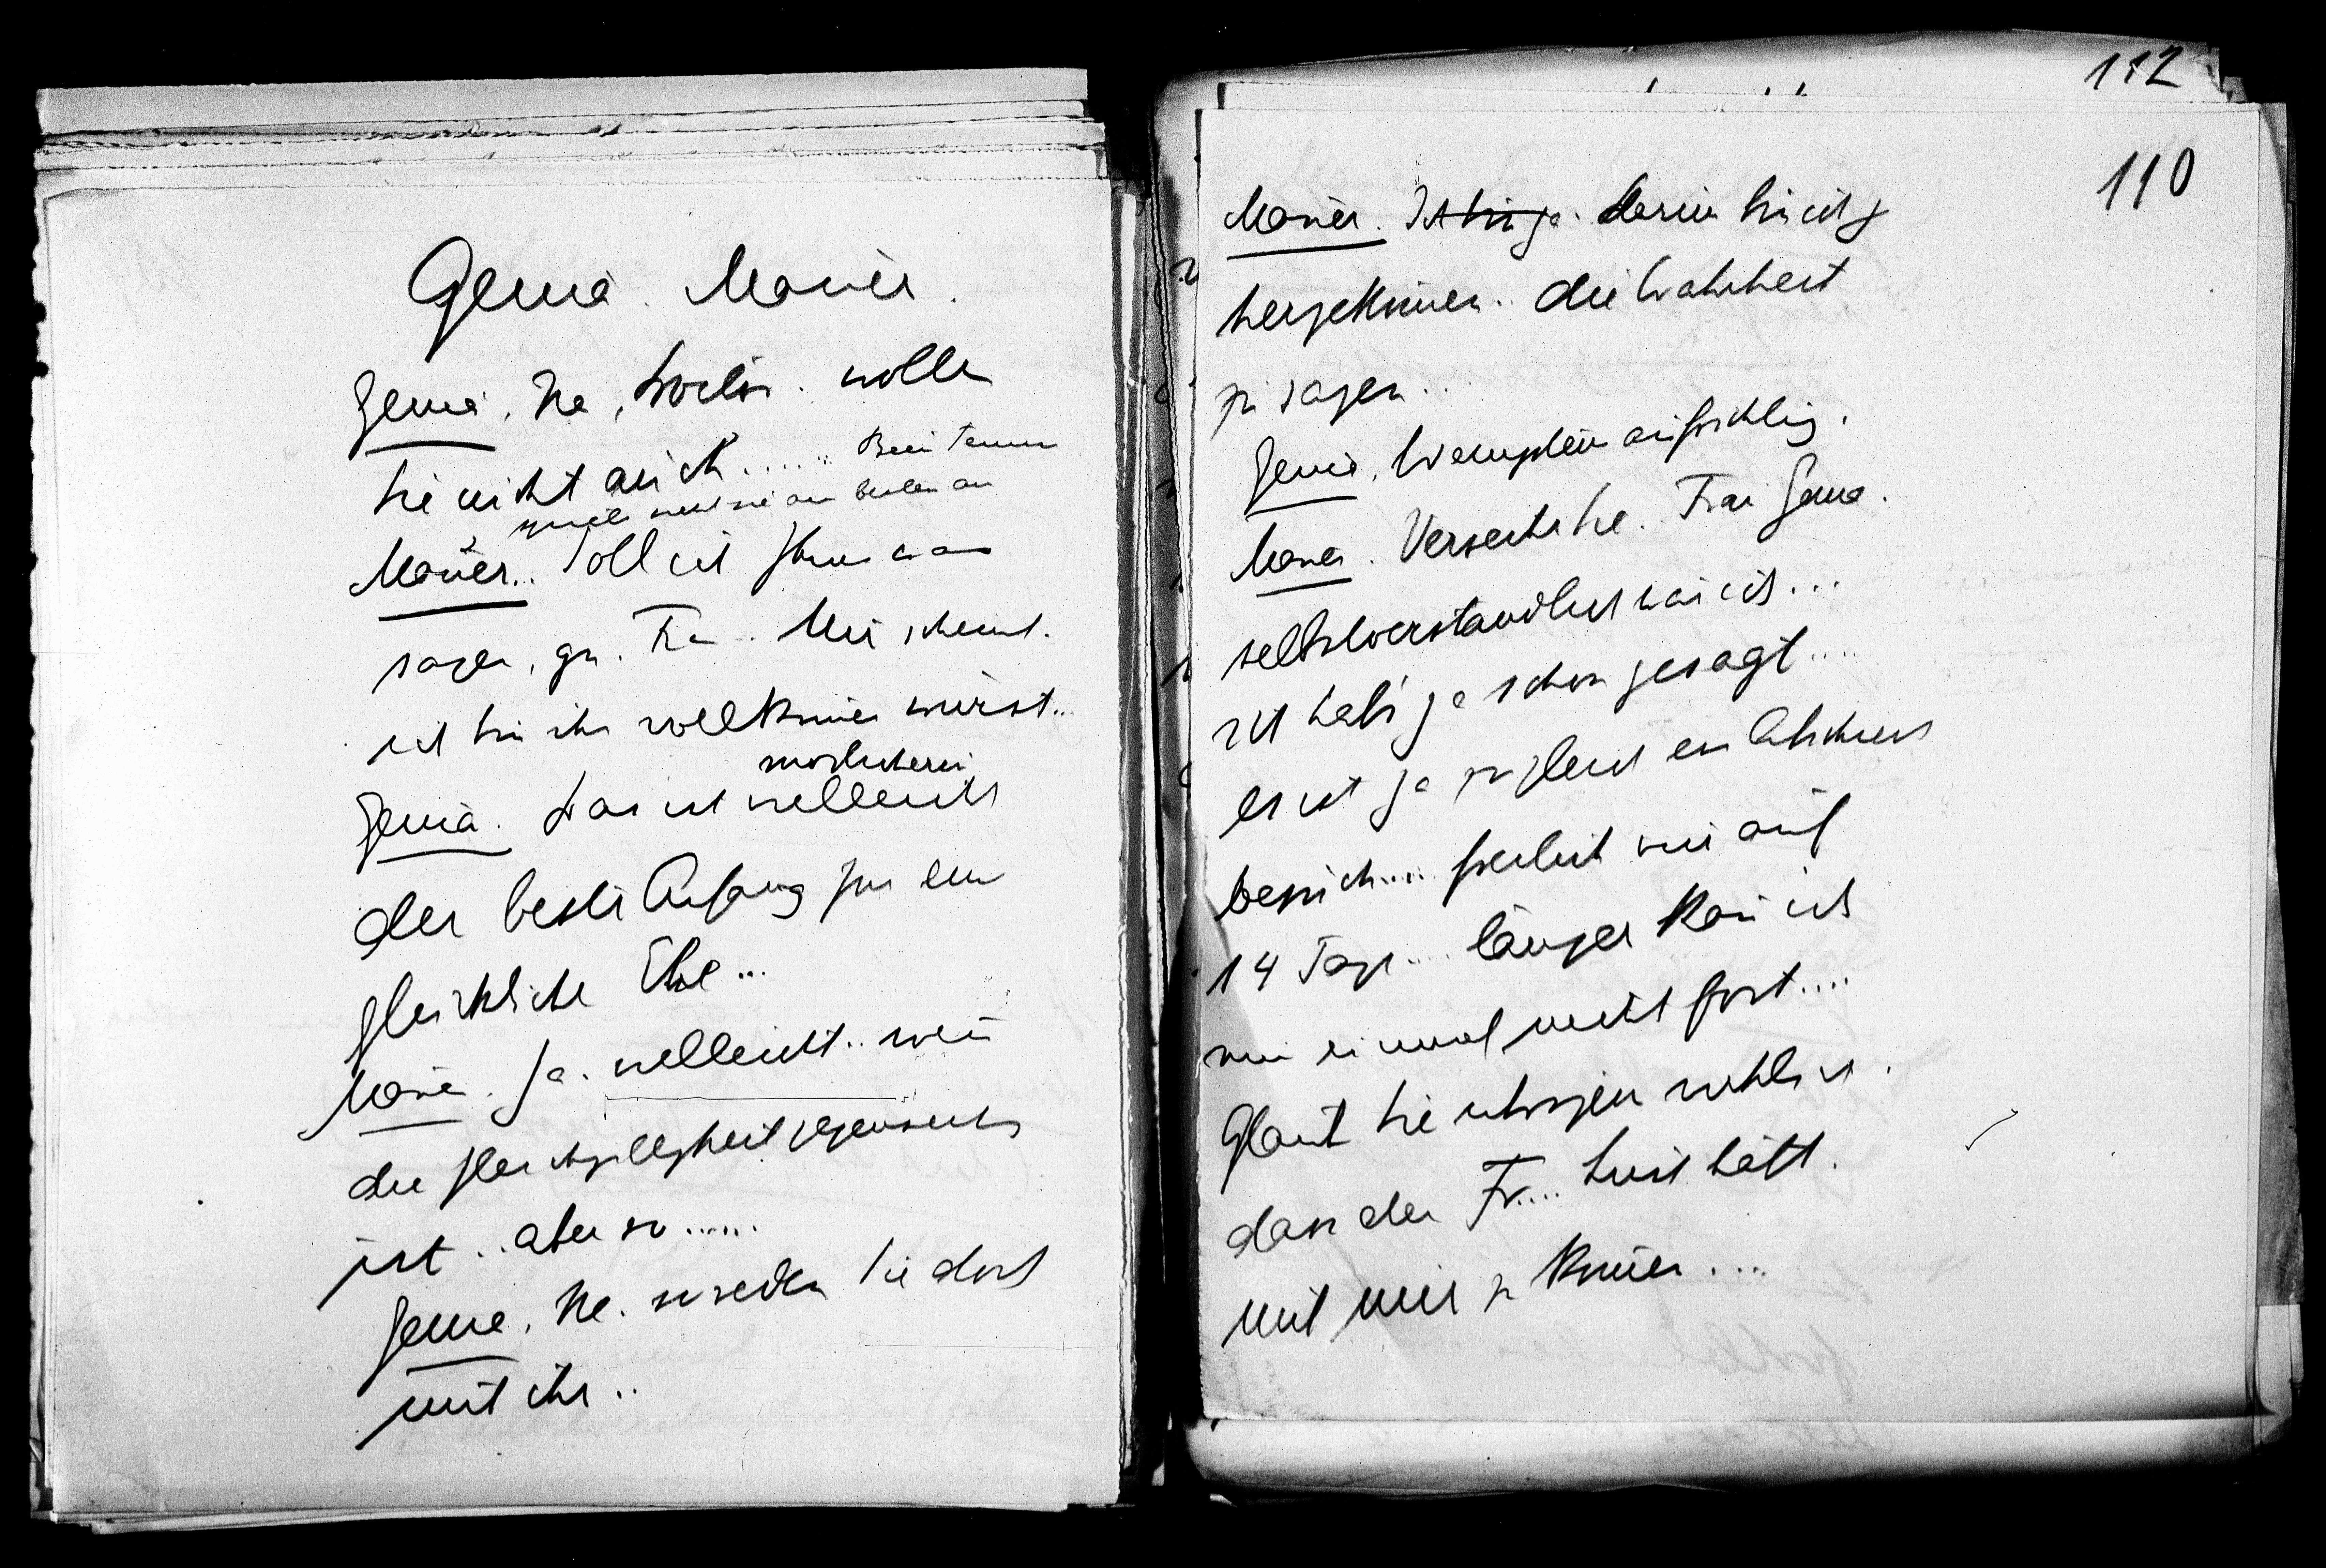 Genia. Mauer.
Genia, Na, Doctor. wollen
Sie nicht auch...... Beim Tennis
sehn sie am besten aus
Mauer.. Soll ich Ihnen was
sagen, gn. Frau. Mir scheint.
ich bin ihr vollkommen wurst...
möglicherw
Genia. Das ist vielleicht
der beste Anfang für eine
glückliche Ehe...
Mauer. Ja. vielleicht.. wenn
die Gleichgiltigkeit gegenseitig
ist... aber so......
Genia, Na. so reden Sie doch
mit ihr..
112
110
Mauer. Ich bin ja. Darum bin ich ja
hergekommen.. die Wahrheit
zu sagen...
Genia. Wenigstens aufrichtig.
Mauer. Verzeihn Sie. Frau Genia.
selbstverständlich wär ich...
ich habe ja schon gesagt....
es ist ja zugleich ein Abschieds
besuch.... freilich nur auf
14 Tage.... länger kann ich
nun einmal nicht fort....
Glaubn Sie übrigens wirklich.
dass der Fr.... Lust hätt.
mit mir zu kommen....